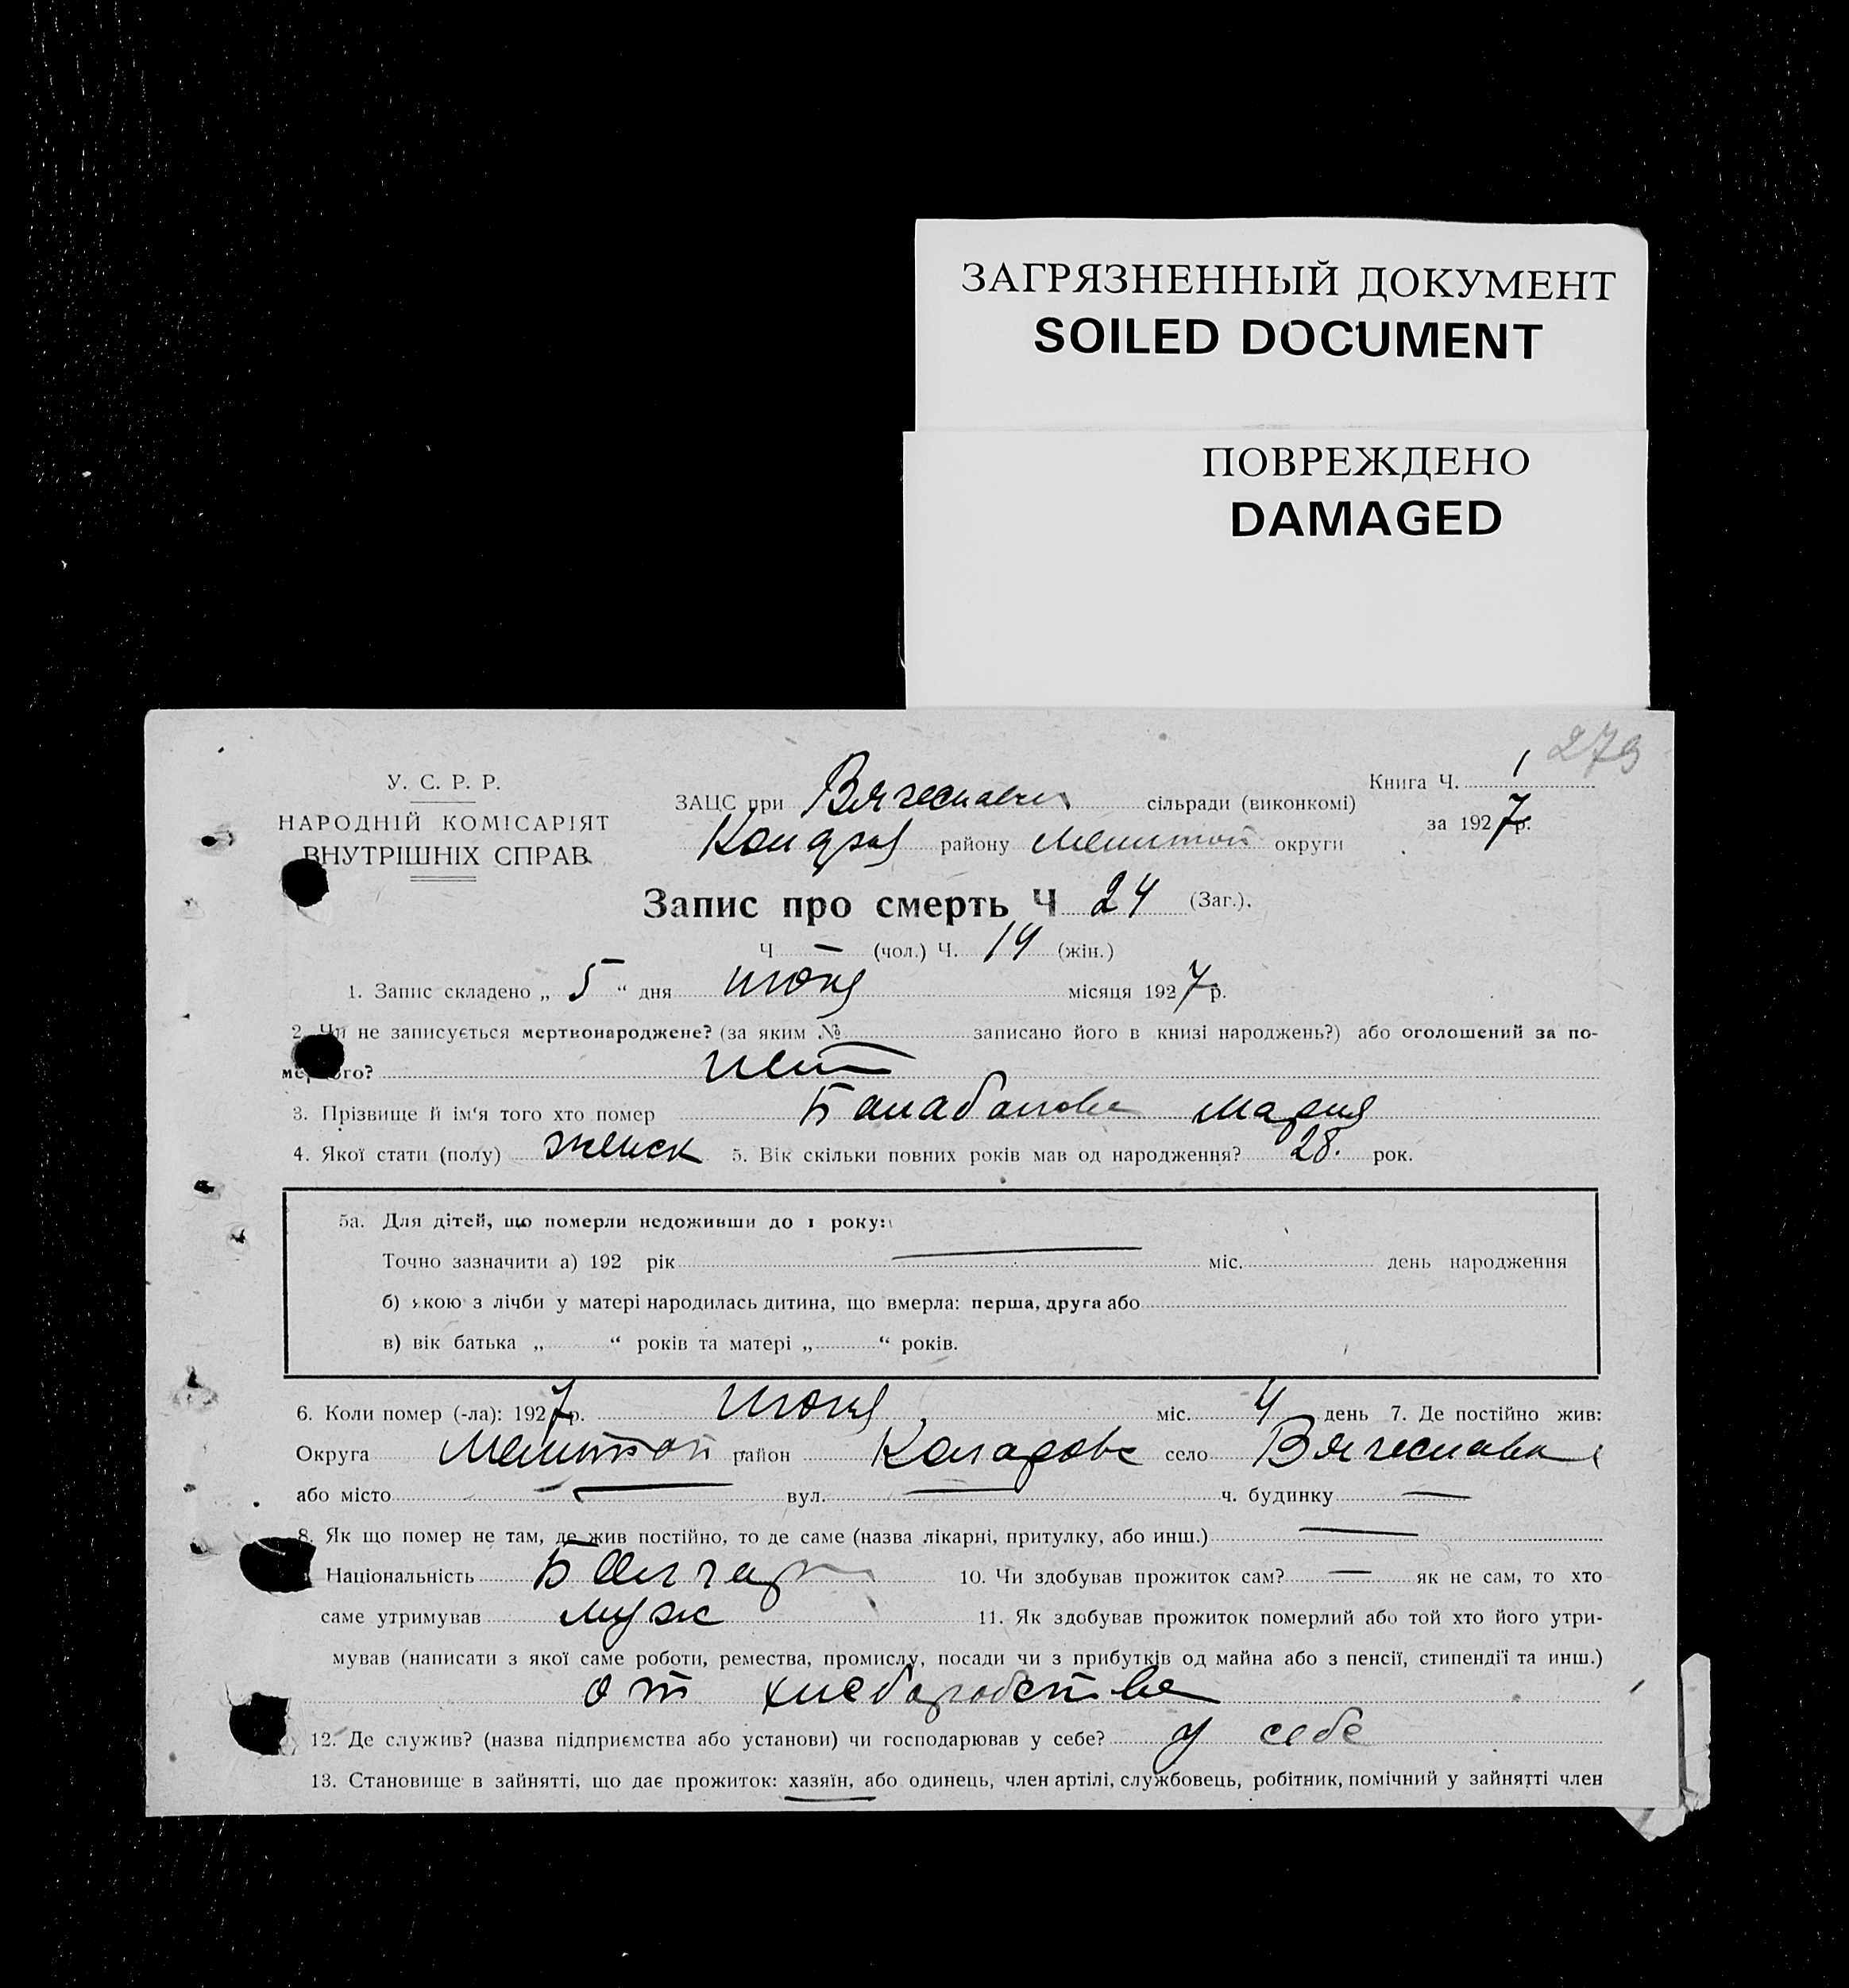 ЗАГРЯЗНЕННЫЙ ДОКУМЕНТ
SOILED DOCUMENT
ПОВРЕЖДЕНО
DAMAGED
279
У. С. Р. Р.
НАРОДНІЙ КОМІСАРІЯТ
ВНУТРІШНІХ СПРАВ.
Книга Ч. 1
за 1927 р.
ЗАЦС при сільради (виконкомі)
району округи
Запис про смерть Ч 24 (Заг.).
Ч — (чол.) Ч. 14 (жін.)
1. Запис складено „ 5 “ дня июня місяця 1927 р.
2. Чи не записується мертвонароджене? (за яким № записано його в книзі народжень?) або оголошений за по-
мертвого? нет
3. Прізвище й ім‘я того хто помер Балабанова Мария
4. Якої стати (полу) женск 5. Вік скільки повних років мав од народження? 28. рок.
5а. Для дітей, що померли недоживши до 1 року:
Точно зазначити а) 192 рік — міс. день народження
б) якою з лічби у матері народилась дитина, що вмерла: перша, друга або
в) вік батька „ “ років та матері „ “ років.
6. Коли помер (-ла): 1927 р. июня міс. 4 день 7. Де постійно жив:
Округа район село
або місто — вул. — ч. будинку —
8. Як що помер не там, де жив постійно, то де саме (назва лікарні, притулку, або инш.) —
Національність Болгар 10. Чи здобував прожиток сам? — як не сам, то хто
саме утримував муж 11. Як здобував прожиток померлий або той хто його утри-
мував (написати з якої саме роботи, ремества, промислу, посади чи з прибутків од майна або з пенсії, стипендії та инш.)
от хлеборобства
12. Де служив? (назва підприємства або установи) чи господарював у себе? у себе
13. Становище в зайнятті, що дає прожиток: хазяїн, або одинець, член артілі, службовець, робітник, помічний у зайнятті член